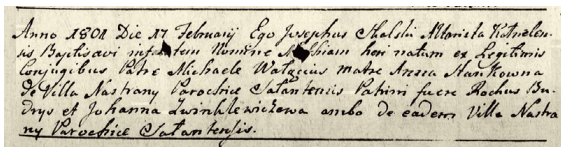 Anno 1801 Die 17 Februarij Ego Josephus Skalski Altarista Kotrelen-
sis Baptisavi infantem Nomine Mathiam heri natum ex Legitimis
Conjugibus Patre Michaele matre Anna Stankowna
de Villa Nastrany Parochiæ Salantensis Patrini fuere Rochus Bu-
drys et Johanna Zwinklewiczewa ambo de eadem Villa Nastra
ny Parochiæ Salantensis.